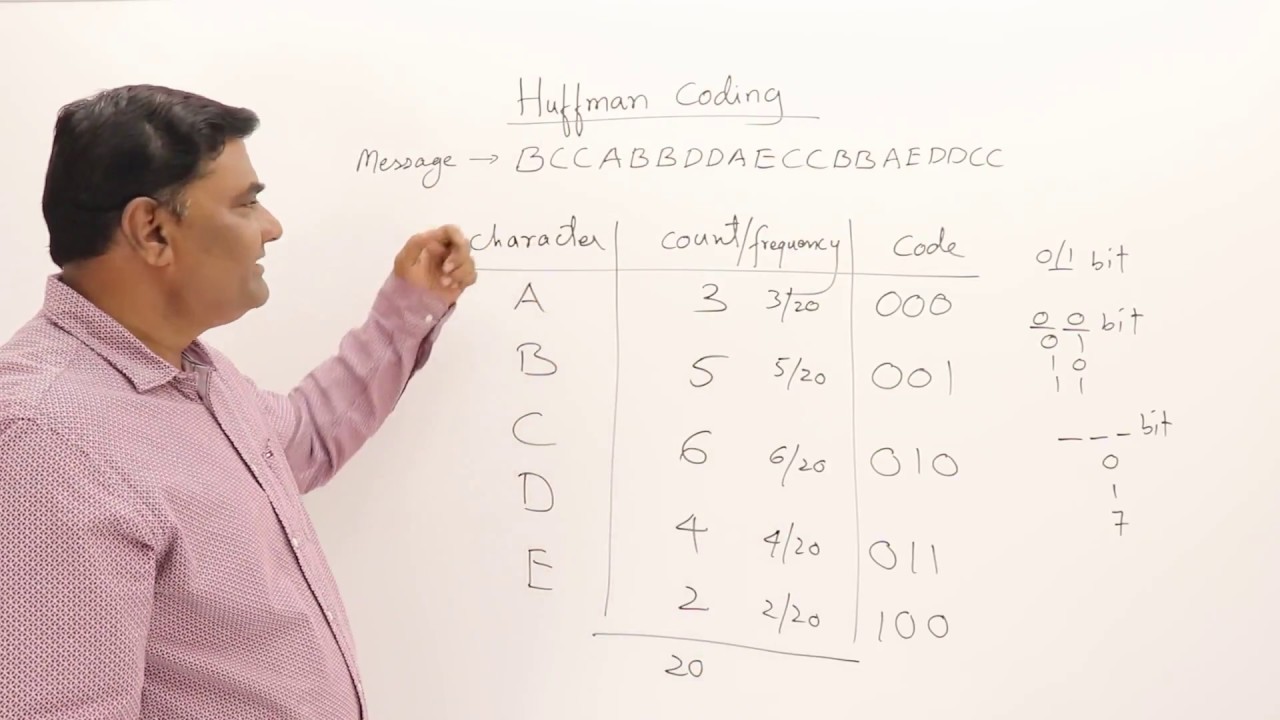 Huffman Coding
Message → BCCABBDDAECCBBAEDDCC
character count/frequency Code
A 3 3/20 000
B 5 5/20 001
C 6 6/20 010
D 4 4/20 011
E 2 2/20 100
20
0/1 bit
0 0 bit
0 1
1 0
1 1
_ _ _ bit
0
1
7